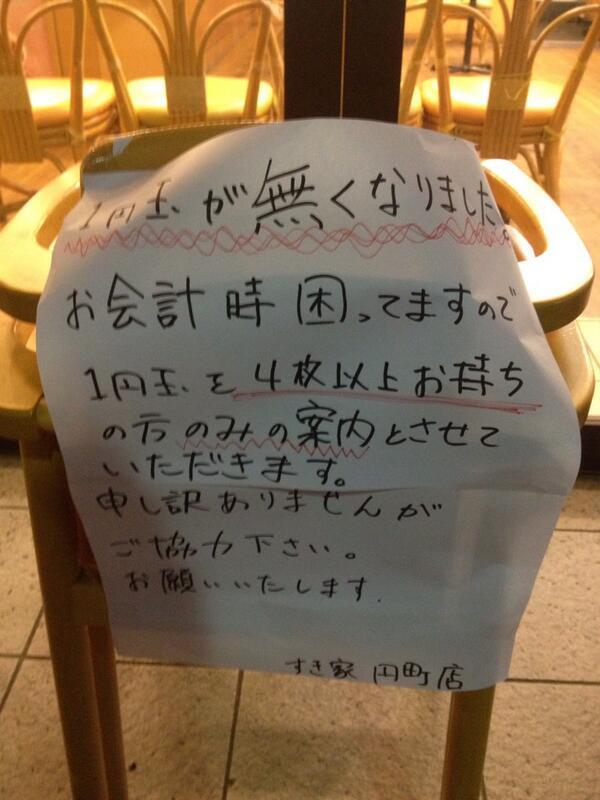 1円玉が無くなりました。
お会計時困ってますので
1円玉を4枚以上お持ち
の方のみの案内とさせて
いただきます。
申し訳ありませんが
ご協力下さい。
お願いいたします.
すき家 円町店